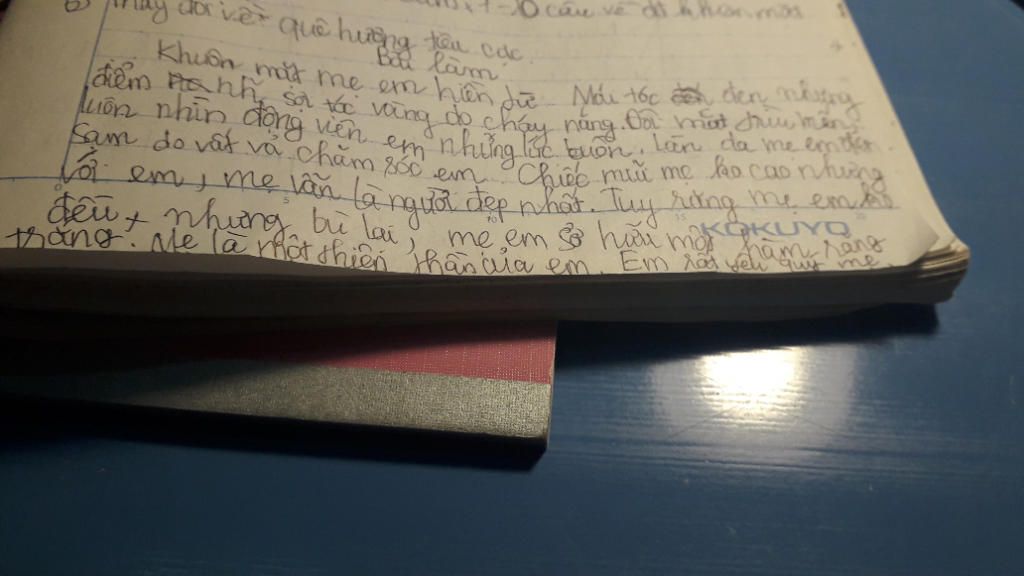 câu về
thay đổi về quê hương
Bài làm
Khuôn mặt mẹ em hiền từ. Mái tóc đen nhưng
điểm sợi tóc vàng do cháy nắng. Đôi mắt trìu mến
luôn nhìn động viên em những lúc buồn. Làn da mẹ em
sạm do vất vả chăm sóc em. Chiếc mũi mẹ ko cao nhưng
với em, mẹ vẫn là người đẹp nhất. Tuy rằng mẹ em ko
đều, nhưng bù lại, mẹ em sở hữu một hàm răng
KOKUYO
trắng. Mẹ là một thiên thần của em. Em rất yêu quý mẹ